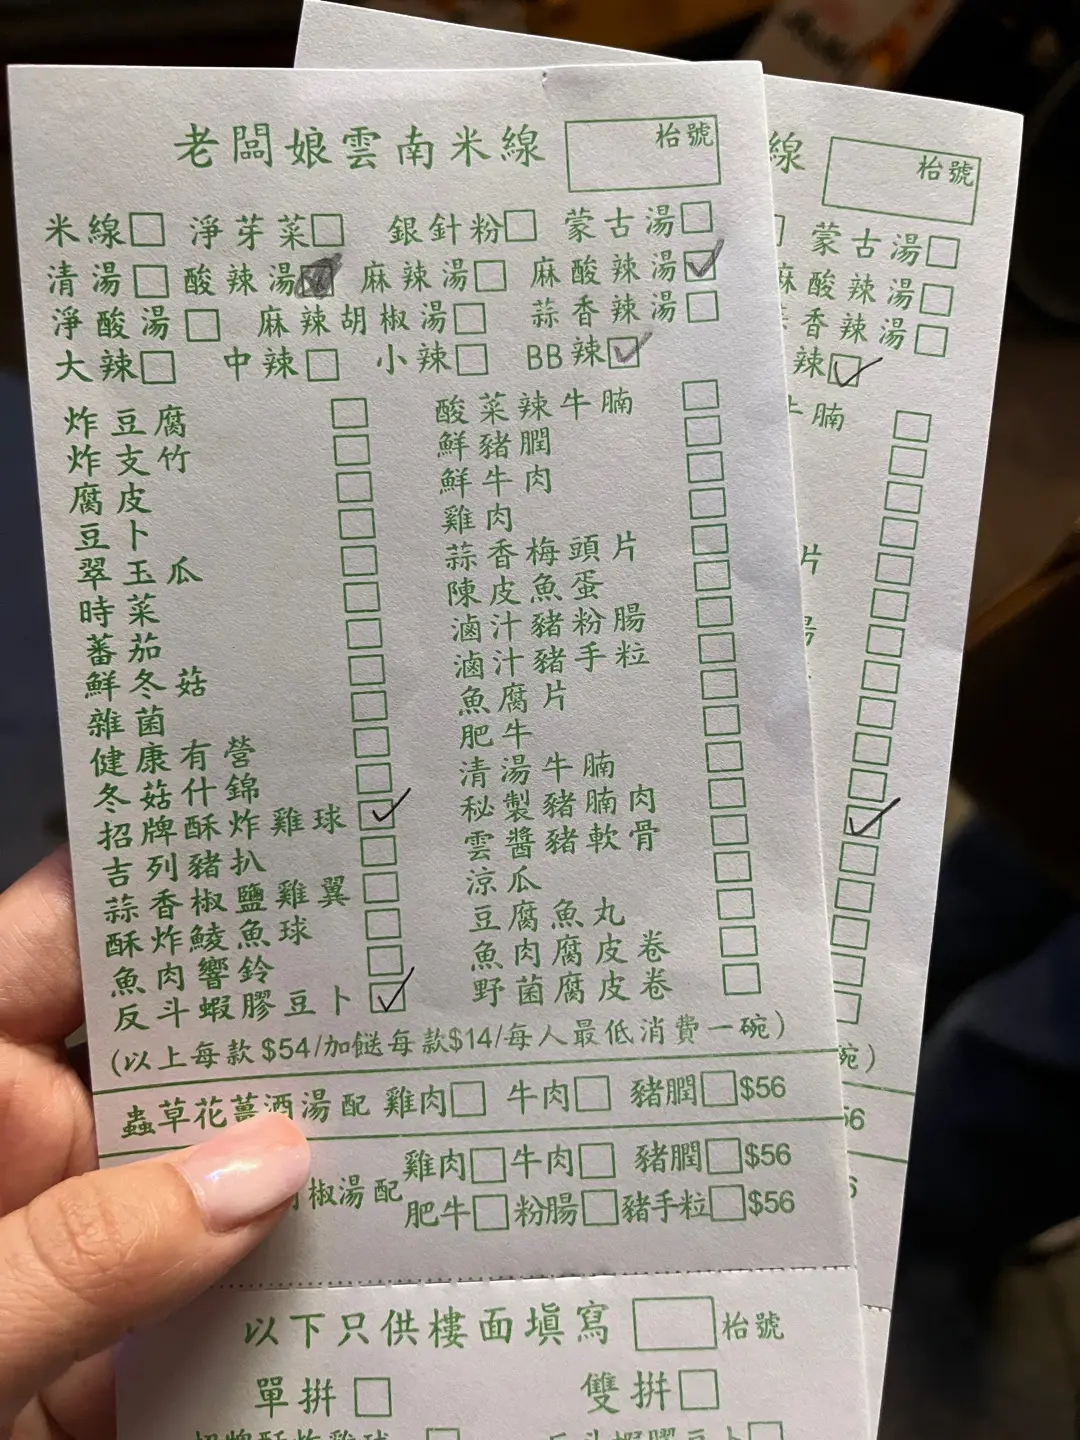 老闆娘雲南米線 枱號
米線 淨芽菜 銀針粉 蒙古湯
清湯 酸辣湯 麻辣湯 麻酸辣湯
淨酸湯 麻辣胡椒湯 蒜香辣湯
大辣 中辣 小辣 BB辣
炸豆腐 酸菜辣牛腩
炸支竹 鮮豬膶
腐皮 鮮牛肉
豆卜 雞肉
翠玉瓜 蒜香梅頭片
時菜 陳皮魚蛋
蕃茄 滷汁豬粉腸
鮮冬菇 滷汁豬手粒
雜菌 魚腐片
健康有營 肥牛
冬菇什錦 清湯牛腩
招牌酥炸雞球 秘製豬腩肉
吉列豬扒 雲醬豬軟骨
蒜香椒鹽雞翼 涼瓜
酥炸鯪魚球 豆腐魚丸
魚肉響鈴 魚肉腐皮卷
反斗蝦膠豆卜 野菌腐皮卷
(以上每款$54/加餸每款$14/每人最低消費一碗)
蟲草花薑酒湯配 雞肉 牛肉 豬膶 $56
椒湯配 雞肉 牛肉 豬膶 $56
肥牛 粉腸 豬手粒 $56
以下只供樓面填寫 枱號
單拼 雙拼
招牌酥炸雞球 反斗蝦膠豆卜
線 枱號
蒙古湯
麻酸辣湯
香辣湯
辣
牛腩
片
腸
碗)
56
6